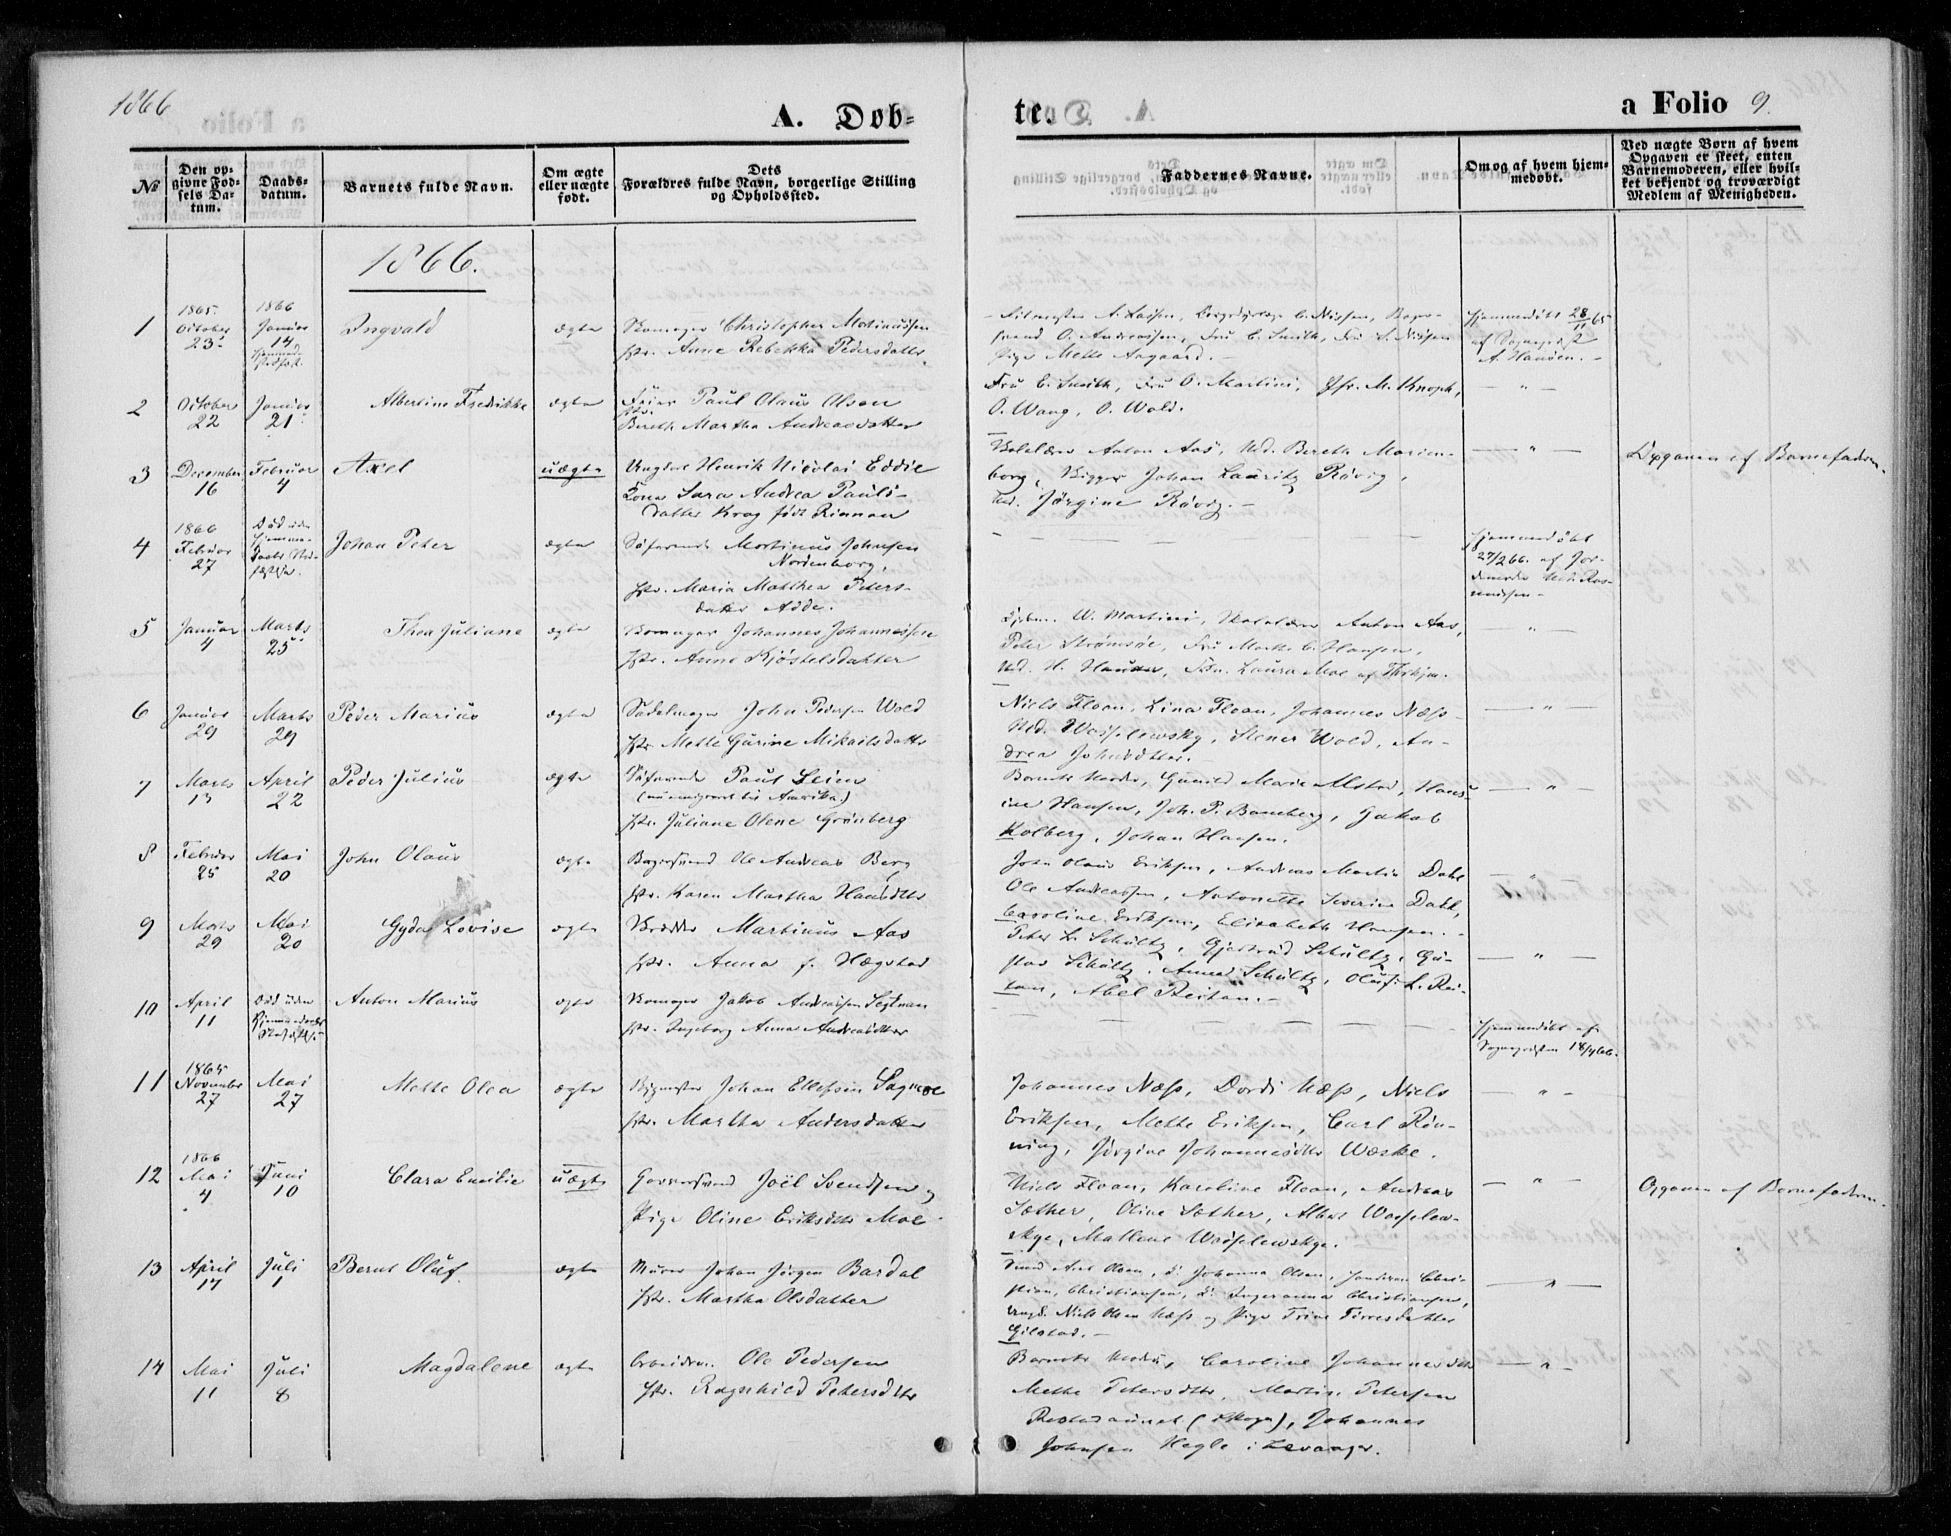 1866
A. Døb=
te.
a Folio 9.
No
Den op-
givne Fød-
sels Da-
tum.
Daabs-
datum.
Barnets fulde Navn.
Om ægte
eller uægte
født.
Dets
Forældres fulde Navn, borgerlige Stilling
og Opholdssted.
Faddernes Navne.
Om og af hvem hjem-
medøbt.
Ved uægte Børn af hvem
Opgaven er skeet, enten
Barnemoderen, eller hvil-
ket bekjendt og troværdigt
Medlem af Menigheden.
1866.
1
1865
October
23
1866
Januar
14
Ingvald
ægte
Skomager Christopher Matinussen
Hstr. Anne Rebekka Pedersdatter
A. Lassen, C. Nissen, Bager-
svend O. Andreassen, Fru C. Smith, Fru Nissen
Pige Mette Aagaard. -
Hjemmedøbt 28/11 65
af Sognepræst
A. Hansen. -
2
October
22
Januar
21
Albertine Fredrikke
ægte
Feier Paul Olaus Olsen
Hstr.
Bereth Martha Andreasdatter
Fru C. Smith, Fru O. Martini, Jfr. M. Knoph,
O. Wang, O. Wold.
— " —
3
December
16
Februar
4
Axel
uægte
Ungkarl Henrik Nicolai Eddie
Kone Sara Andrea Pauls-
datter Krog født Rinnan
Skolelærer Anton Aas, Md. Bereth Marien-
borg, Skipper Johan Lauritz Røvig,
Md. Jørgine Røvig. -
— " —
Opgaven af Barnefaderen.
4
1866
Februar
27
Død uden
Hjemme-
Daabs Stad-
fæstelse
Johan Peter
ægte
Søfarende Martinus Johnsen
Nordenborg,
Hstr. Maria Mathea Peters-
datter Adde.
Hjemmedøbt
27/2 66. af Jor-
demoder Md. Ras-
mussen -
5
Januar
4
Marts
25
Thea Juliane
ægte
Skomager Johannes Johannessen
Hstr. Anne Kjøstelsdatter
W. Martini, Skolelærer Anton Aas,
Peter Strømsøe, Fru Marthe C. Hansen,
Md. H. Hansen, Frk. Laura Moe af
— " —
6
Januar
29
Marts
29
Peder Marius
ægte
Sadelmager John Pedersen Wold
Hstr. Mette Gurine Mikailsdatter
Niels Floan, Lina Floan, Johannes Næss
Md. Wasselewsky, Stener Wold, An-
drea Johnsdatter.
— " —
7
Marts
13
April
22
Peder Julius
ægte
Søfarende Paul Leien
(nu emigreret til Amerika)
Hstr. Juliane Olene Grønberg
Barnets Moder, Gunild Marie Alstad, Hans-
ine Hansen, Joh. P. Bomberg, Jakob
Kolberg, Johan Hansen.
— " —
8
Februar
25
Mai
20
John Olaus
ægte
Bagersvend Ole Andreas Berg
Hstr. Karen Martha Hansdtr
John Olaus Eriksen, Andreas Martin Dahl
Ole Andreassen, Antonette Severine Dahl,
Caroline Eriksen, Elisabeth Hansen. -
— " —
9
Marts
29
Mai
20
Gyda Lovise
ægte
Skrædder Martinus Aas
Hstr. Anna f. Hægstad
Peter L. Schultz, Gjertrud Schultz, Gu-
stav Schultz, Anna Schultz, Oluf L. Rei-
tan, Abel Reitan. -
— " —
10
April
11
Død uden
Anton Marius
ægte
Skomager Jakob Andreassen Segtnan
Hstr. Ingeborg Anna Andreasdatter
Hjemmedøbt af
Sognepræsten 18/4 66.
11
1865
November
27
Mai
27
Mette Olea
ægte
Johan Ellefssen Sagmoe
Hstr. Martha Andersdatter
Johannes Næss, Dordi Næss, Niels
Eriksen, Mette Eriksen, Carl Røn-
ning, Jørgine Johannesdtr Wæske.
— " —
12
1866
Mai
4
Juni
10
Clara Emilie
uægte
Garversvend Joël Svendsen og
Pige Oline Eriksdtr Moe
Niels Floan, Karoline Floan, Andreas
Sæther, Oline Sæther, Albert Wasselew-
skye, Mallene Wasselewskye.
— " —
Opgaven af Barnefaderen
13
April
17
Juli
1
Bernt Oluf
ægte
Murer Johan Jørgen Bardal
Hstr. Martha Olsdatter
Smed Olsen, d. Johanna Olsen, Chri-
stian Christiansen, Christiansen,
Ungk. Niels Olsen Næss og Pige Trine Torresdatter
Gilstad. -
— " —
14
Mai
11
Juli
8
Magdalene
ægte
Arbeidsm. Ole Pedersen
Hstr. Ragnhild Petersdtr
Barnets Moder, Caroline Johannesdtr
Mette Petersdtr, Martin Petersen
(Skogn), Johannes
Johnsen Hegle i Levanger.
— " —